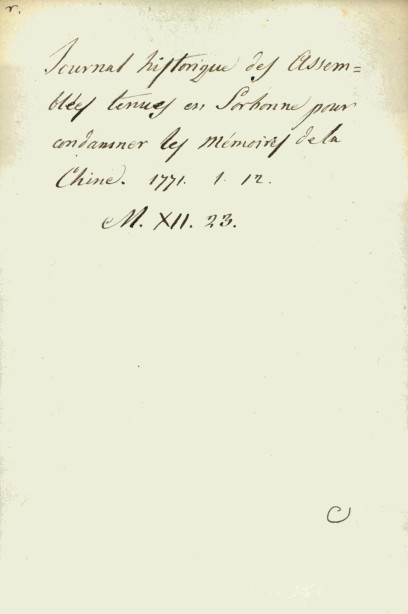 r.
Journal historique des Assem=
blées tenues en Sorbonne pour
condamner les Mémoires de la
Chine. 1771. 1. 12.
M. XII. 23.
C